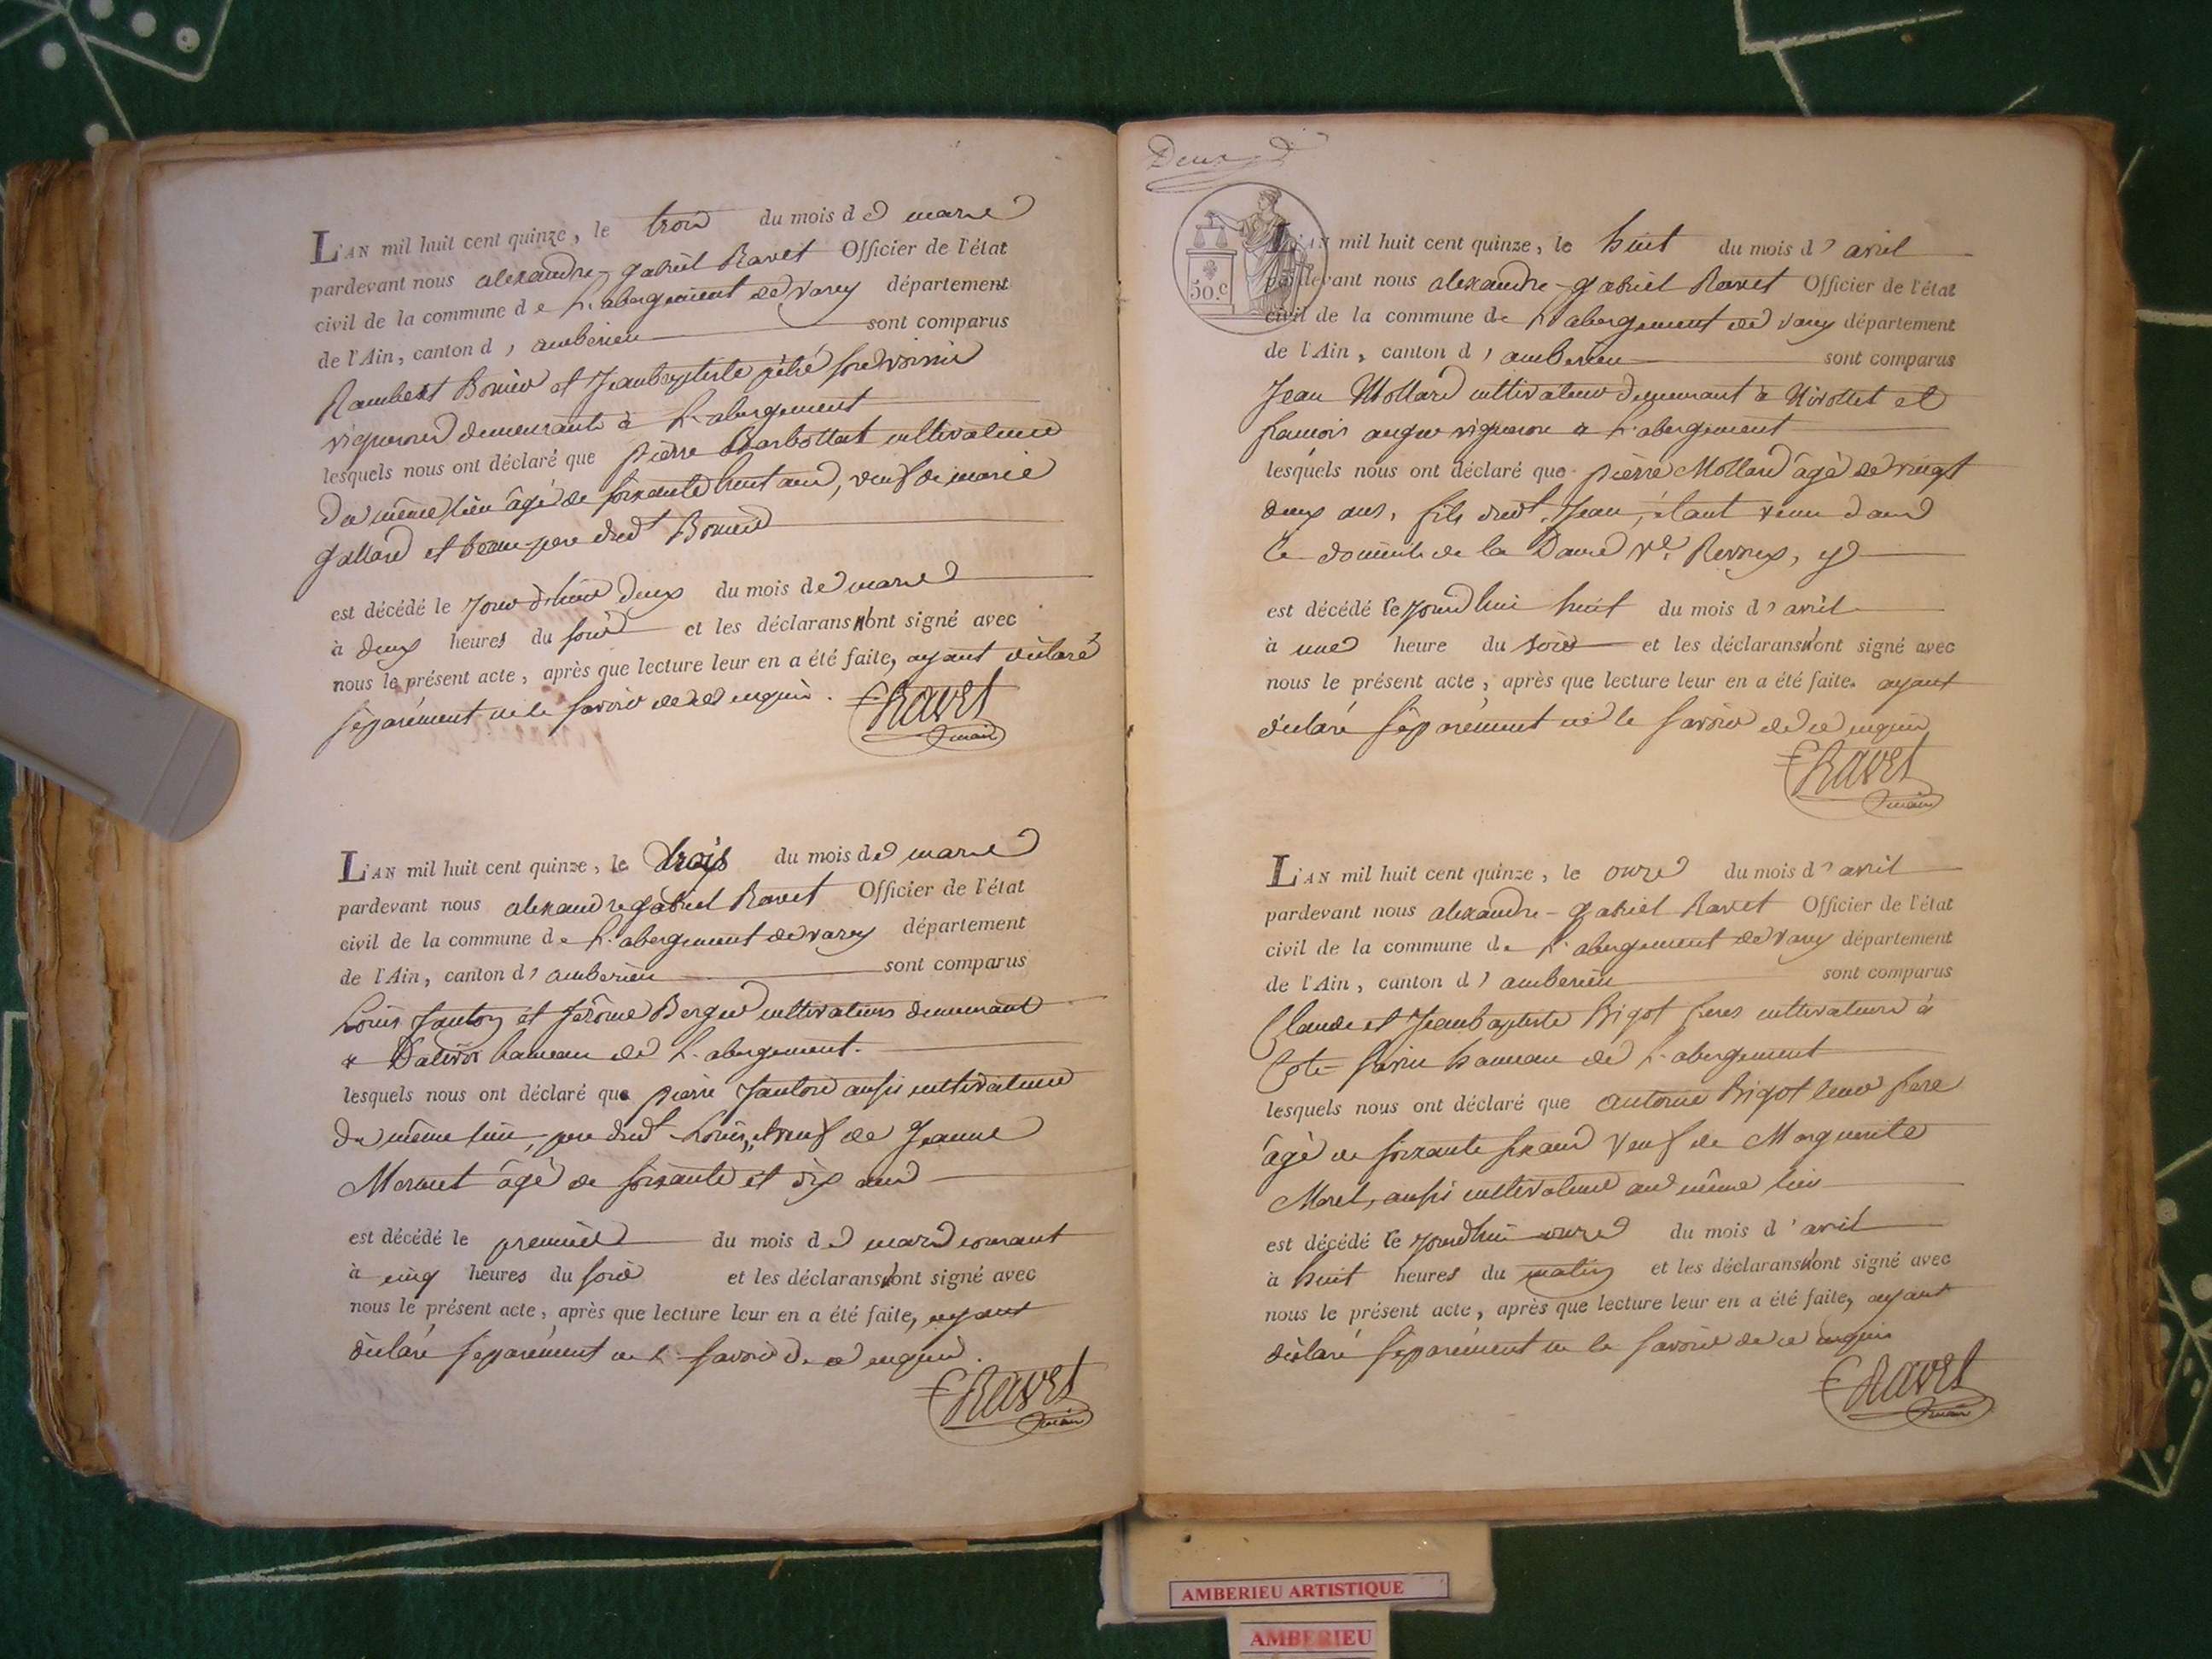 L'AN mil huit cent quinze, le trois du mois de mars
pardevant nous alexandre-gabriel Ravet Officier de l'état
civil de la commune de L'abergement de varey département
de l'Ain, canton d'amberieu sont comparus
Rambert Bonier et Jeanbaptiste
vignerons demeurants à L'abergement
lesquels nous ont déclaré que pierre Barbottat cultivateur
du même lieu âgé de soixante huit ans, veuf de marie
gallard et beau-pere dudt
est décédé le jour d'hier deux du mois de mars
à deux heures du soir et les déclarans n'ont signé avec
nous le présent acte, après que lecture leur en a été faite, ayant déclaré
séparément ne le savoir de ce enquis.
Ravet
maire
L'AN mil huit cent quinze, le trois du mois de mars
pardevant nous alexandre gabriel Ravet Officier de l'état
civil de la commune de L'abergement de varey département
de l'Ain, canton d'amberieu sont comparus
Louis Janton et Jérôme Berger cultivateurs demeurant
a Dalivoy hameau de L'abergement.
lesquels nous ont déclaré que pierre Janton aussi cultivateur
du même lieu, pere dudt Louis, et veuf de Jeanne
âgé de soixante et dix ans
est décédé le premier du mois de mars courant
à cinq heures du soir et les déclarans n'ont signé avec
nous le présent acte, après que lecture leur en a été faite, ayant
déclaré séparément ne le savoir de ce enquis.
Ravet
maire
Deux
50.c
L'AN mil huit cent quinze, le huit du mois d'avril
pardevant nous alexandre-gabriel Ravet Officier de l'état
civil de la commune de L'abergement de varey département
de l'Ain, canton d'amberieu sont comparus
Jean Mollard cultivateur demeurant à Nivollet et
francois auger vigneron a L'abergement
lesquels nous ont déclaré que pierre Mollard âgé de vingt
deux ans, fils dudt Jean, étant venu dans
le domicile de la Dame Ve. y
est décédé le jourdhui huit du mois d'avril
à une heure du soir et les déclarans n'ont signé avec
nous le présent acte, après que lecture leur en a été faite. ayant
déclaré séparément ne le savoir de ce enquis
Ravet
maire
L'AN mil huit cent quinze, le onze du mois d'avril
pardevant nous alexandre-gabriel Ravet Officier de l'état
civil de la commune de L'abergement de varey département
de l'Ain, canton d'amberieu sont comparus
Claude et Jeanbaptiste Bigot freres cultivateurs à
Côte-savin hameau de L'abergement
lesquels nous ont déclaré que antoine Bigot leur pere
âgé de soixante six ans veuf de Marguerite
Morel, aussi cultivateur au même lieu
est décédé le jourdhui onze du mois d'avril
à huit heures du matin et les déclarans n'ont signé avec
nous le présent acte, après que lecture leur en a été faite, ayant
déclaré séparément ne le savoir de ce enquis
Ravet
maire
AMBERIEU ARTISTIQUE
AMBERIEU